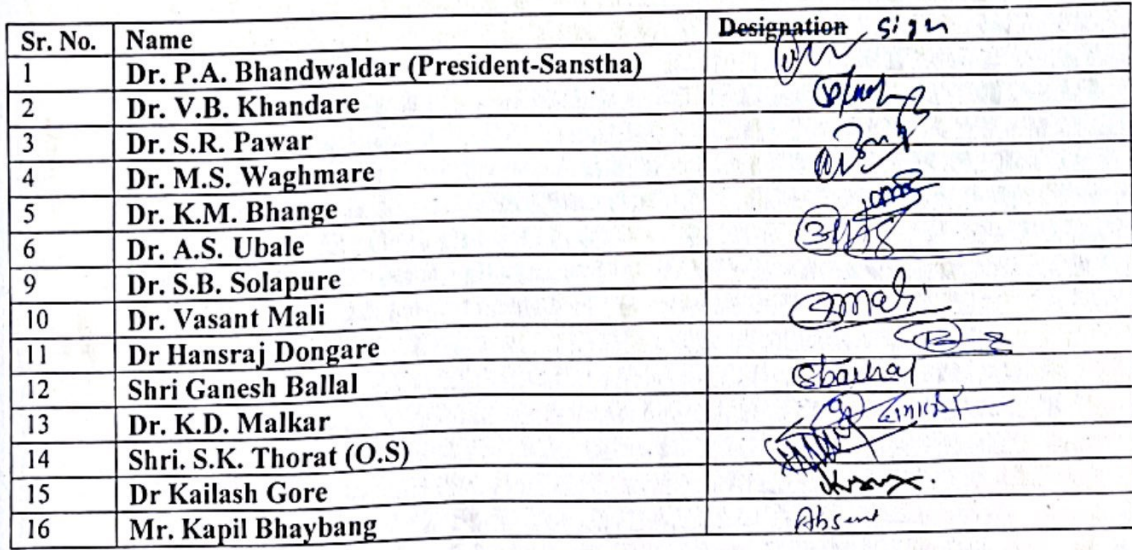 Sr. No. Name Designation Sign
1 Dr. P.A. Bhandwaldar (President-Sanstha)
2 Dr. V.B. Khandare
3 Dr. S.R. Pawar
4 Dr. M.S. Waghmare
5 Dr. K.M. Bhange
6 Dr. A.S. Ubale
9 Dr. S.B. Solapure
10 Dr. Vasant Mali
11 Dr Hansraj Dongare
12 Shri Ganesh Ballal
13 Dr. K.D. Malkar
14 Shri. S.K. Thorat (O.S)
15 Dr Kailash Gore
16 Mr. Kapil Bhaybang Absent